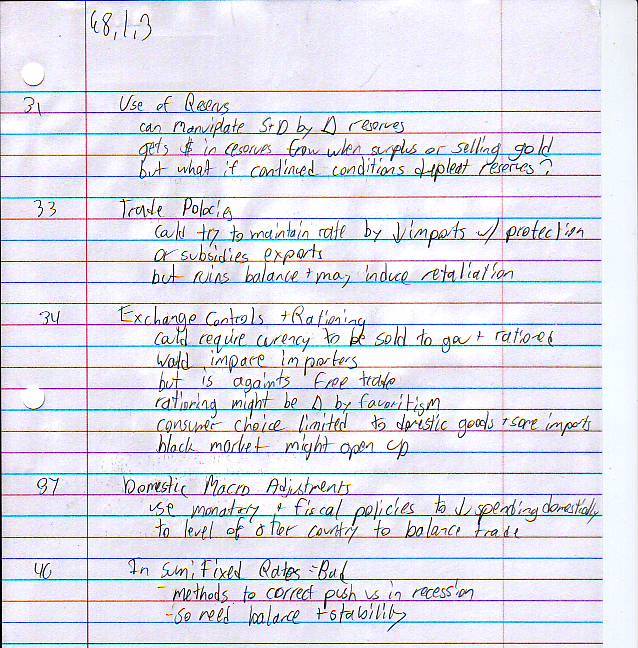 48,1,3
31 Use of Reservs
can manviplate S+D by Δ reserves
gets $ in reserves from when surplus or selling gold
but what if continued conditions depleat reserves?
33 Trade Polocies
could try to maintain rate by ↓imports w/ protection
or subsidies exports
but ruins balance + may induce retaliation
34 Exchange Controls + Rationing
could require curency to be sold to gov + rationed
would impare importers
but is againts free trade
rationing might be Δ by favoritism
consumer choice limited to domestic goods + some imports
black market might open up
37 Domestic Macro Adjustments
use monatary + fiscal policies to ↓ spending domestically
to level of other country to balance trade
46 In Sum, Fixed Rates = Bad
- methods to correct push us in recession
- so need balance + stability